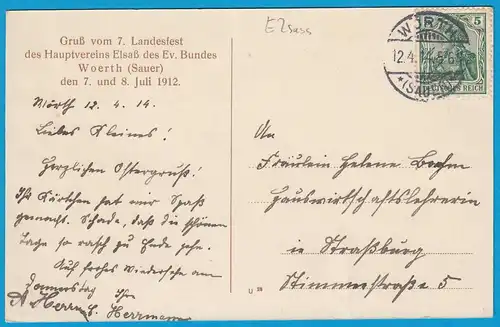 Gruß vom 7. Landesfest
des Hauptvereins Elsaß des Ev. Bundes
Woerth (Sauer)
den 7. und 8. Juli 1912.
Elsass
5
WÖRTH
12.4.14.5-6
*(SAUER)
DEUTSCHES REICH
Wörth 12. 4. 14.
Liebes Kleines!
Herzlichen Ostergruß!
Ihr Kärtchen hat mir Spaß
gemacht. Schade, daß die schönen
Tage so rasch zu Ende gehn.
Auf frohes Wiedersehn am
Donnerstag Ihr
Herrmann
An
Fräulein Helene Boehm
Hauswirtschaftslehrerin
in Straßburg
Stimmerstraße 5